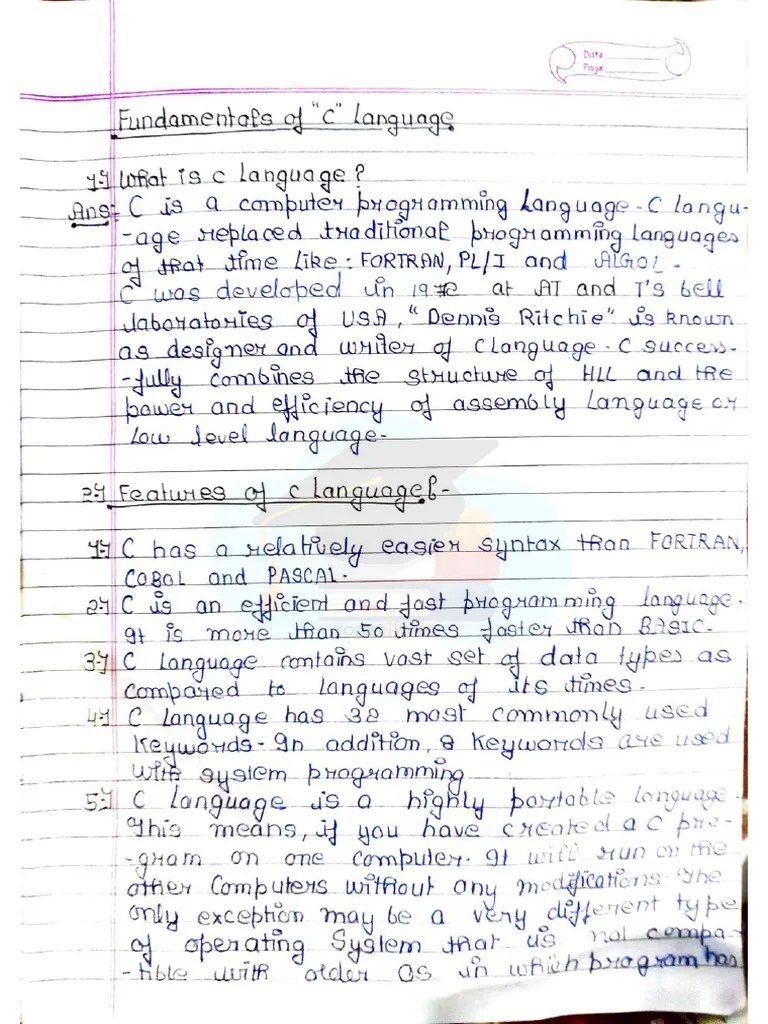 Date
Page
Fundamentals of "C" Language
1.) What is C Language?
Ans:- C is a computer programming Language. C langu-
-age replaced traditional programming languages
of that time like: FORTRAN, PL/I and ALGOL.
C was developed in 1972 at AT and T's bell
laboratories of USA, "Dennis Ritchie" is known
as designer and writer of C language. C success-
-fully combines the structure of HLL and the
power and efficiency of assembly Language or
Low level language.
2.) Features of C Language:-
1.) C has a relatively easier syntax than FORTRAN,
COBOL and PASCAL.
2.) C is an efficient and fast programming language.
It is more than 50 times faster than BASIC.
3.) C Language contains vast set of data types as
compared to languages of its times.
4.) C Language has 32 most commonly used
Keywords. In addition, 8 Keywords are used
with system programming
5.) C language is a highly portable language.
This means, if you have created a C pro-
-gram on one computer. It will run on the
other Computers without any modifications. The
only exception may be a very different type
of operating System that is not compa-
-tible with older OS in which program has